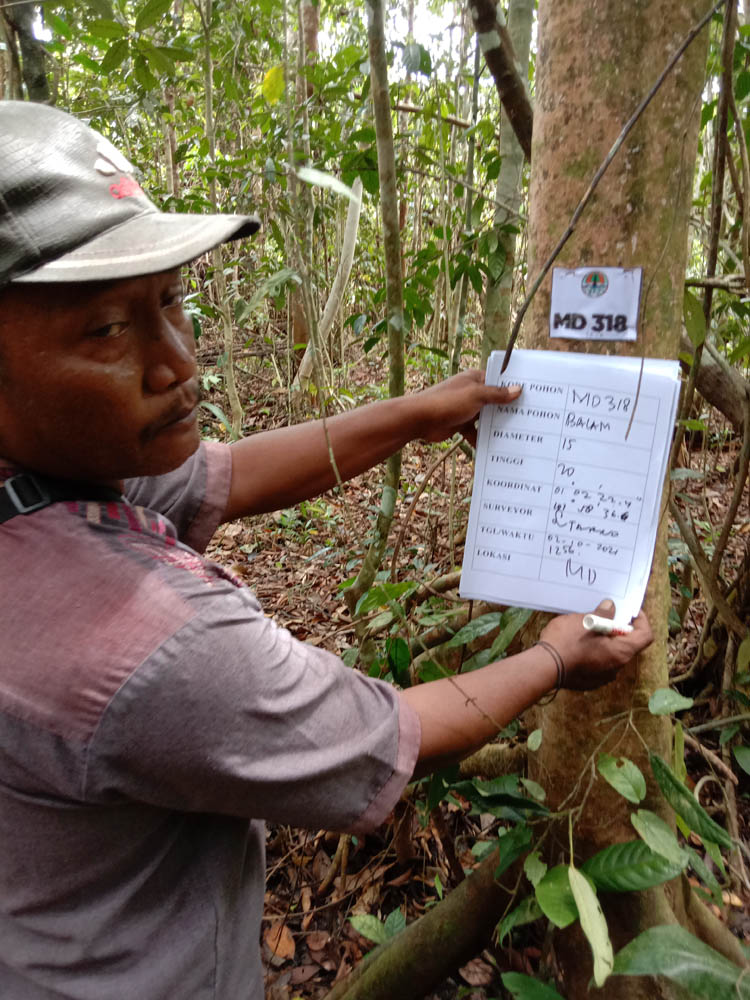 MD 318
KODE POHON MD 318
NAMA POHON BALAM
DIAMETER 15
TINGGI 20
KOORDINAT 01° 02' 22.4"
SURVEYOR
TGL/WAKTU 02-10-2021
1256
LOKASI MD